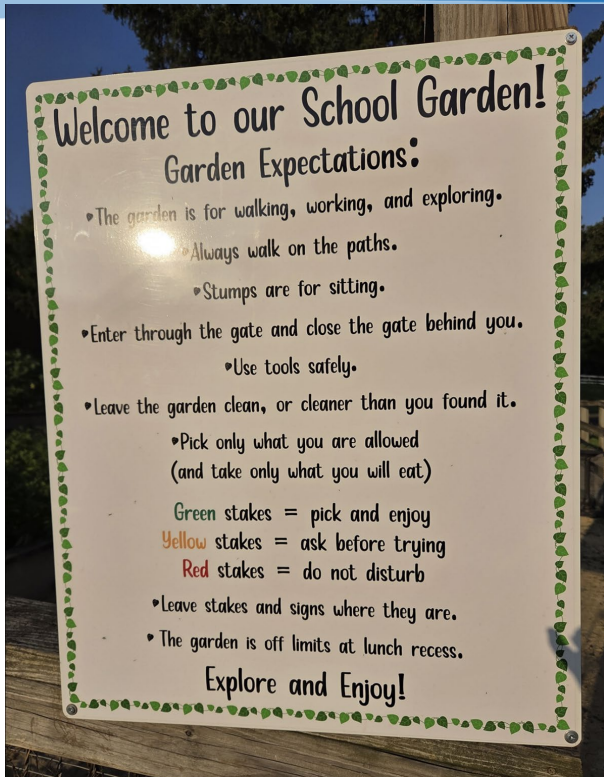 Welcome to our School Garden!
Garden Expectations:
•The garden is for walking, working, and exploring.
•Always walk on the paths.
•Stumps are for sitting.
•Enter through the gate and close the gate behind you.
•Use tools safely.
•Leave the garden clean, or cleaner than you found it.
•Pick only what you are allowed
(and take only what you will eat)
Green stakes = pick and enjoy
Yellow stakes = ask before trying
Red stakes = do not disturb
•Leave stakes and signs where they are.
•The garden is off limits at lunch recess.
Explore and Enjoy!